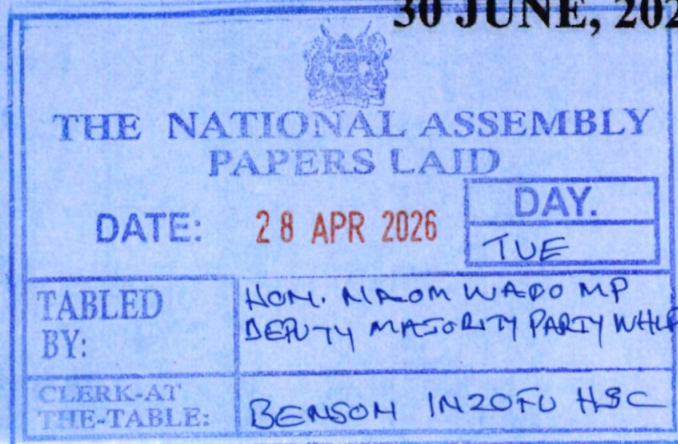 30 JUNE, 202
THE NATIONAL ASSEMBLY
PAPERS LAID
DATE: 28 APR 2026
DAY.
TUE
TABLED BY:
HON. NAOM WAQO MP
DEPUTY MAJORITY PARTY WHIP
CLERK-AT THE-TABLE:
BENSON INZOFU HSC